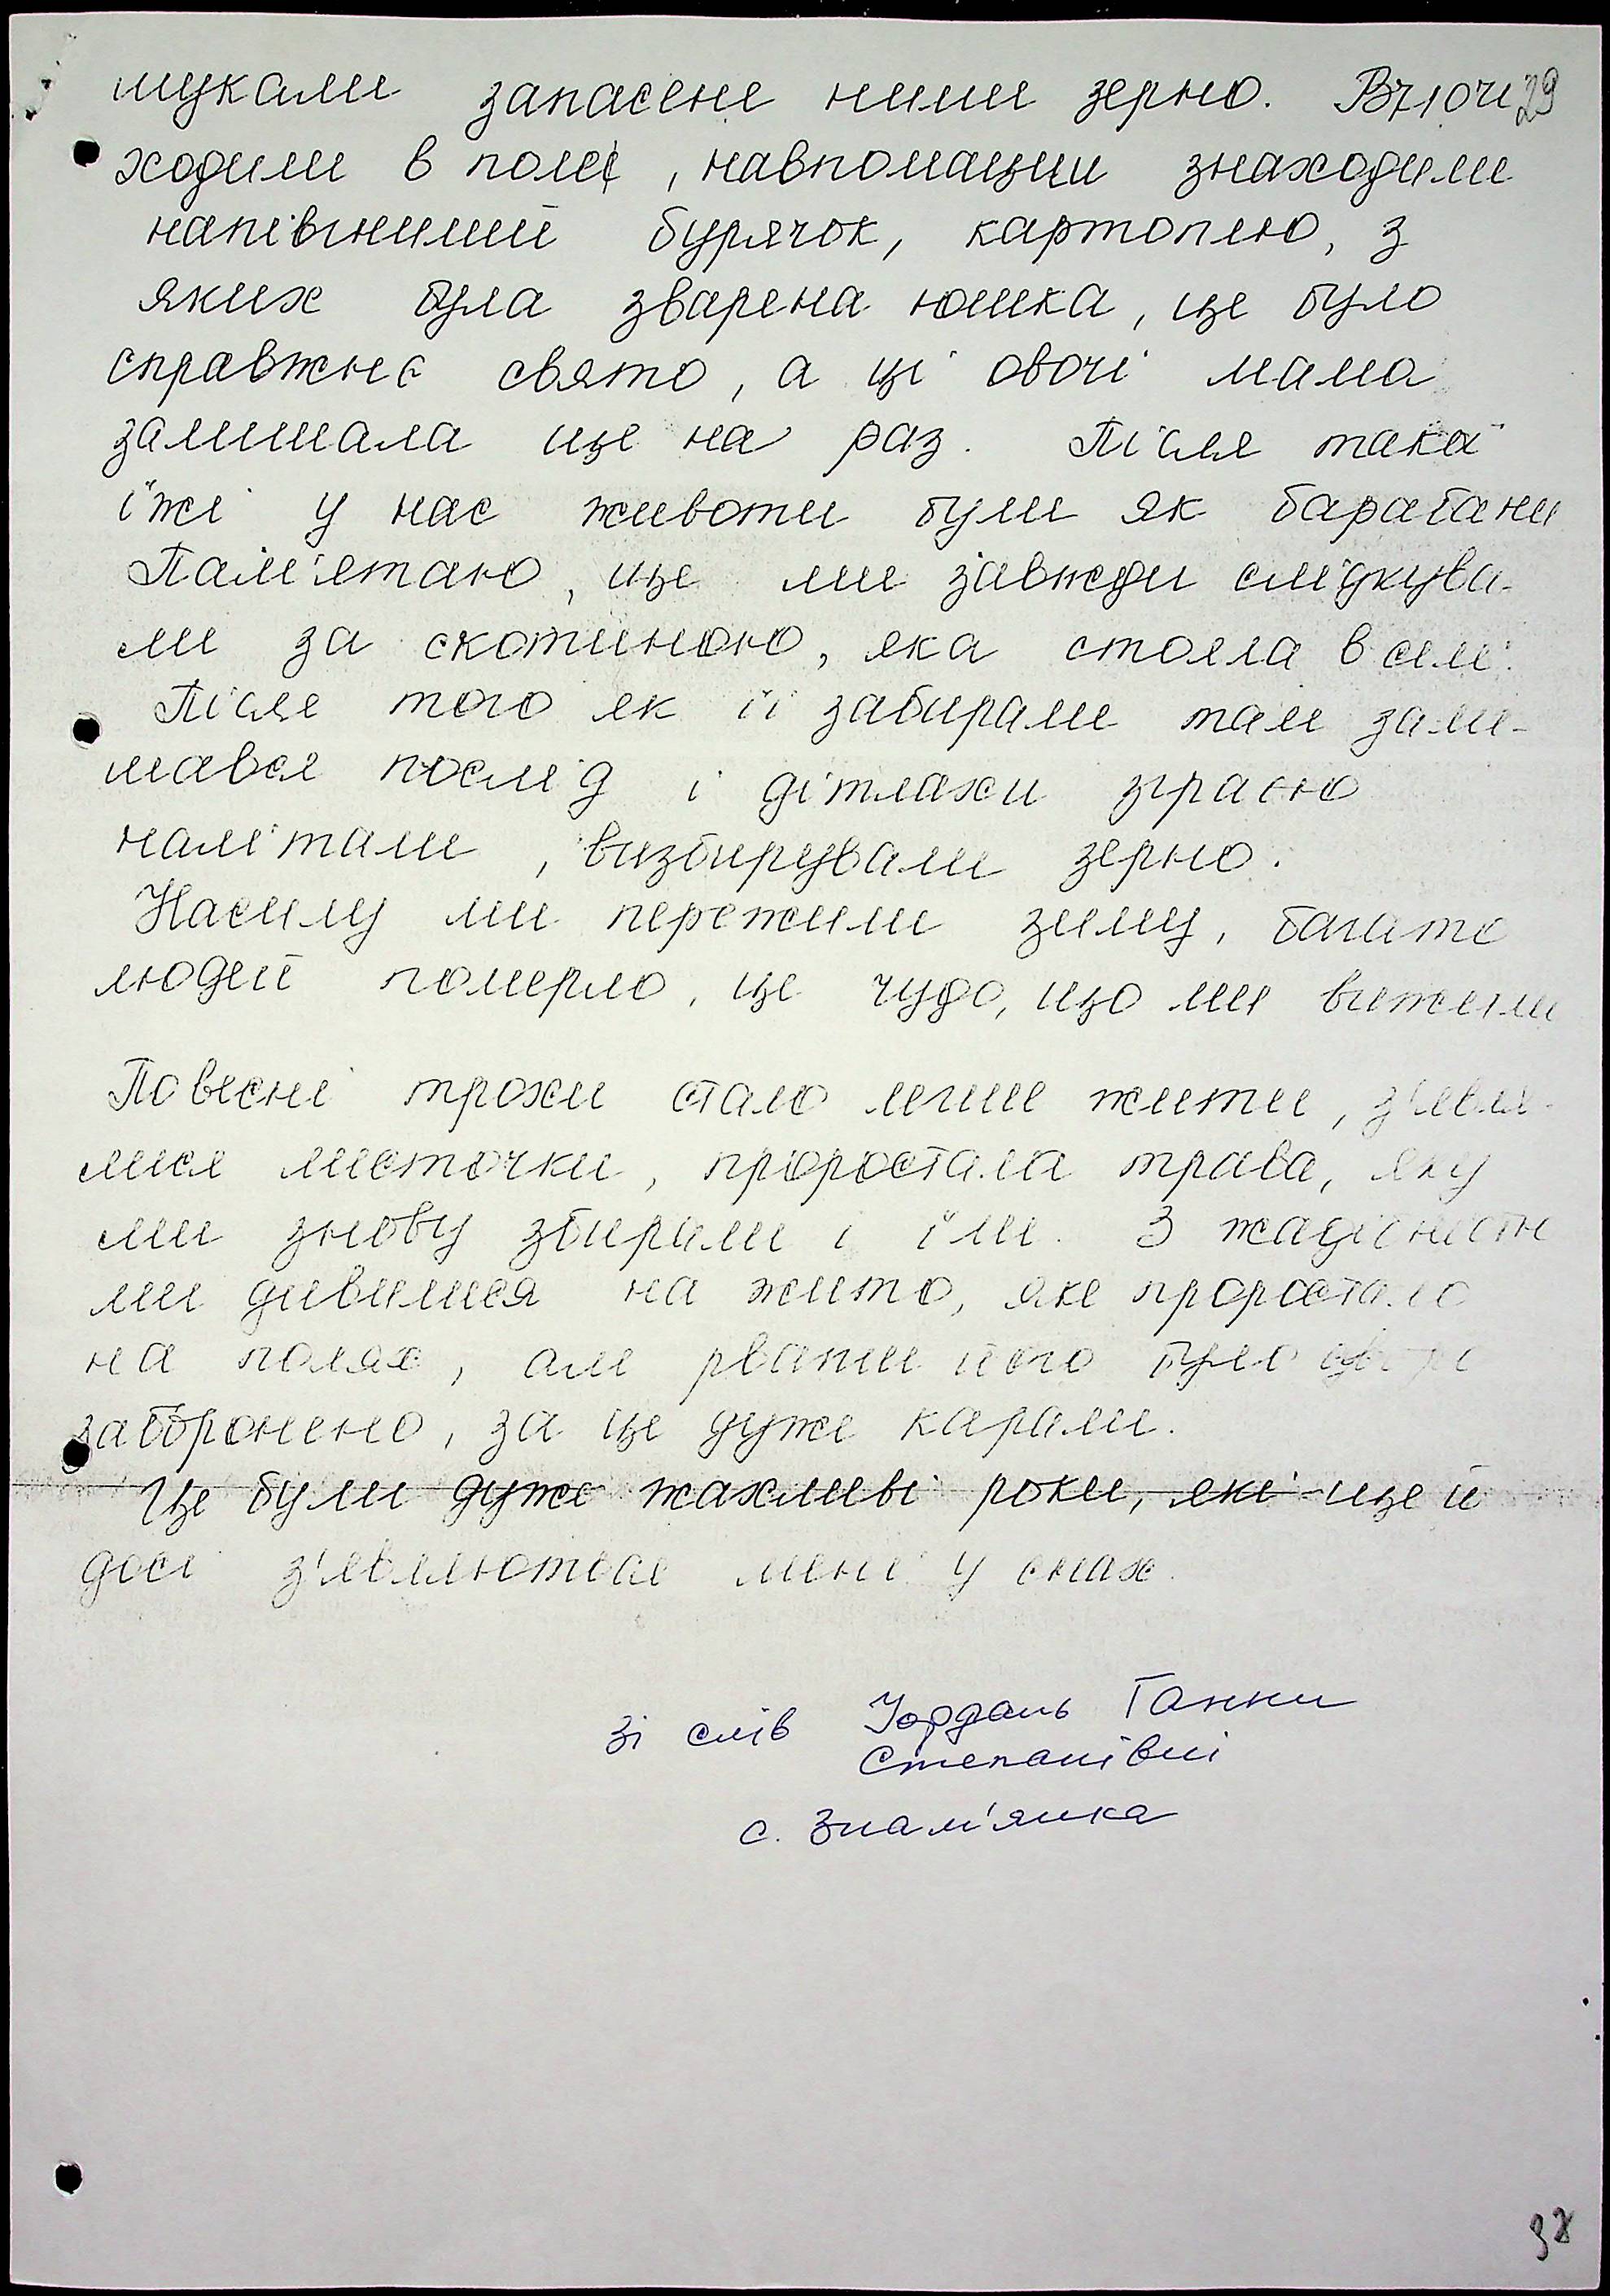 шукали запасене ними зерно. Вночі 29
ходили в полі, навпомацки знаходили
напівгнилий бурячок, картоплю, з
яких була зварена юшка, це було
справжнє свято, а ці овочі мама
залишала ще на раз. Після такої
їжі у нас животи були як барабани
Пам'ятаю, ще ми завжди слідкува-
ли за скотиною, яка стояла в селі.
Після того як її забирали там зали-
шався послід і дітлахи зграєю
налітали, визбирували зерно.
Насилу ми пережили зиму, багато
людей померло, це чудо, що ми вижили
Повесні трохи стало легше жити, з'яви-
лися листочки, проростала трава, яку
ми знову збирали і їли. З жадібністю
ми дивилися на жито, яке проростало
на полях, але рвати його було
заборонено, за це дуже карали.
Це були дуже жахливі роки, які ще й
досі з'являються мені у снах.
зі слів Йордань Ганни
Степанівni
с. Знам'янка
98